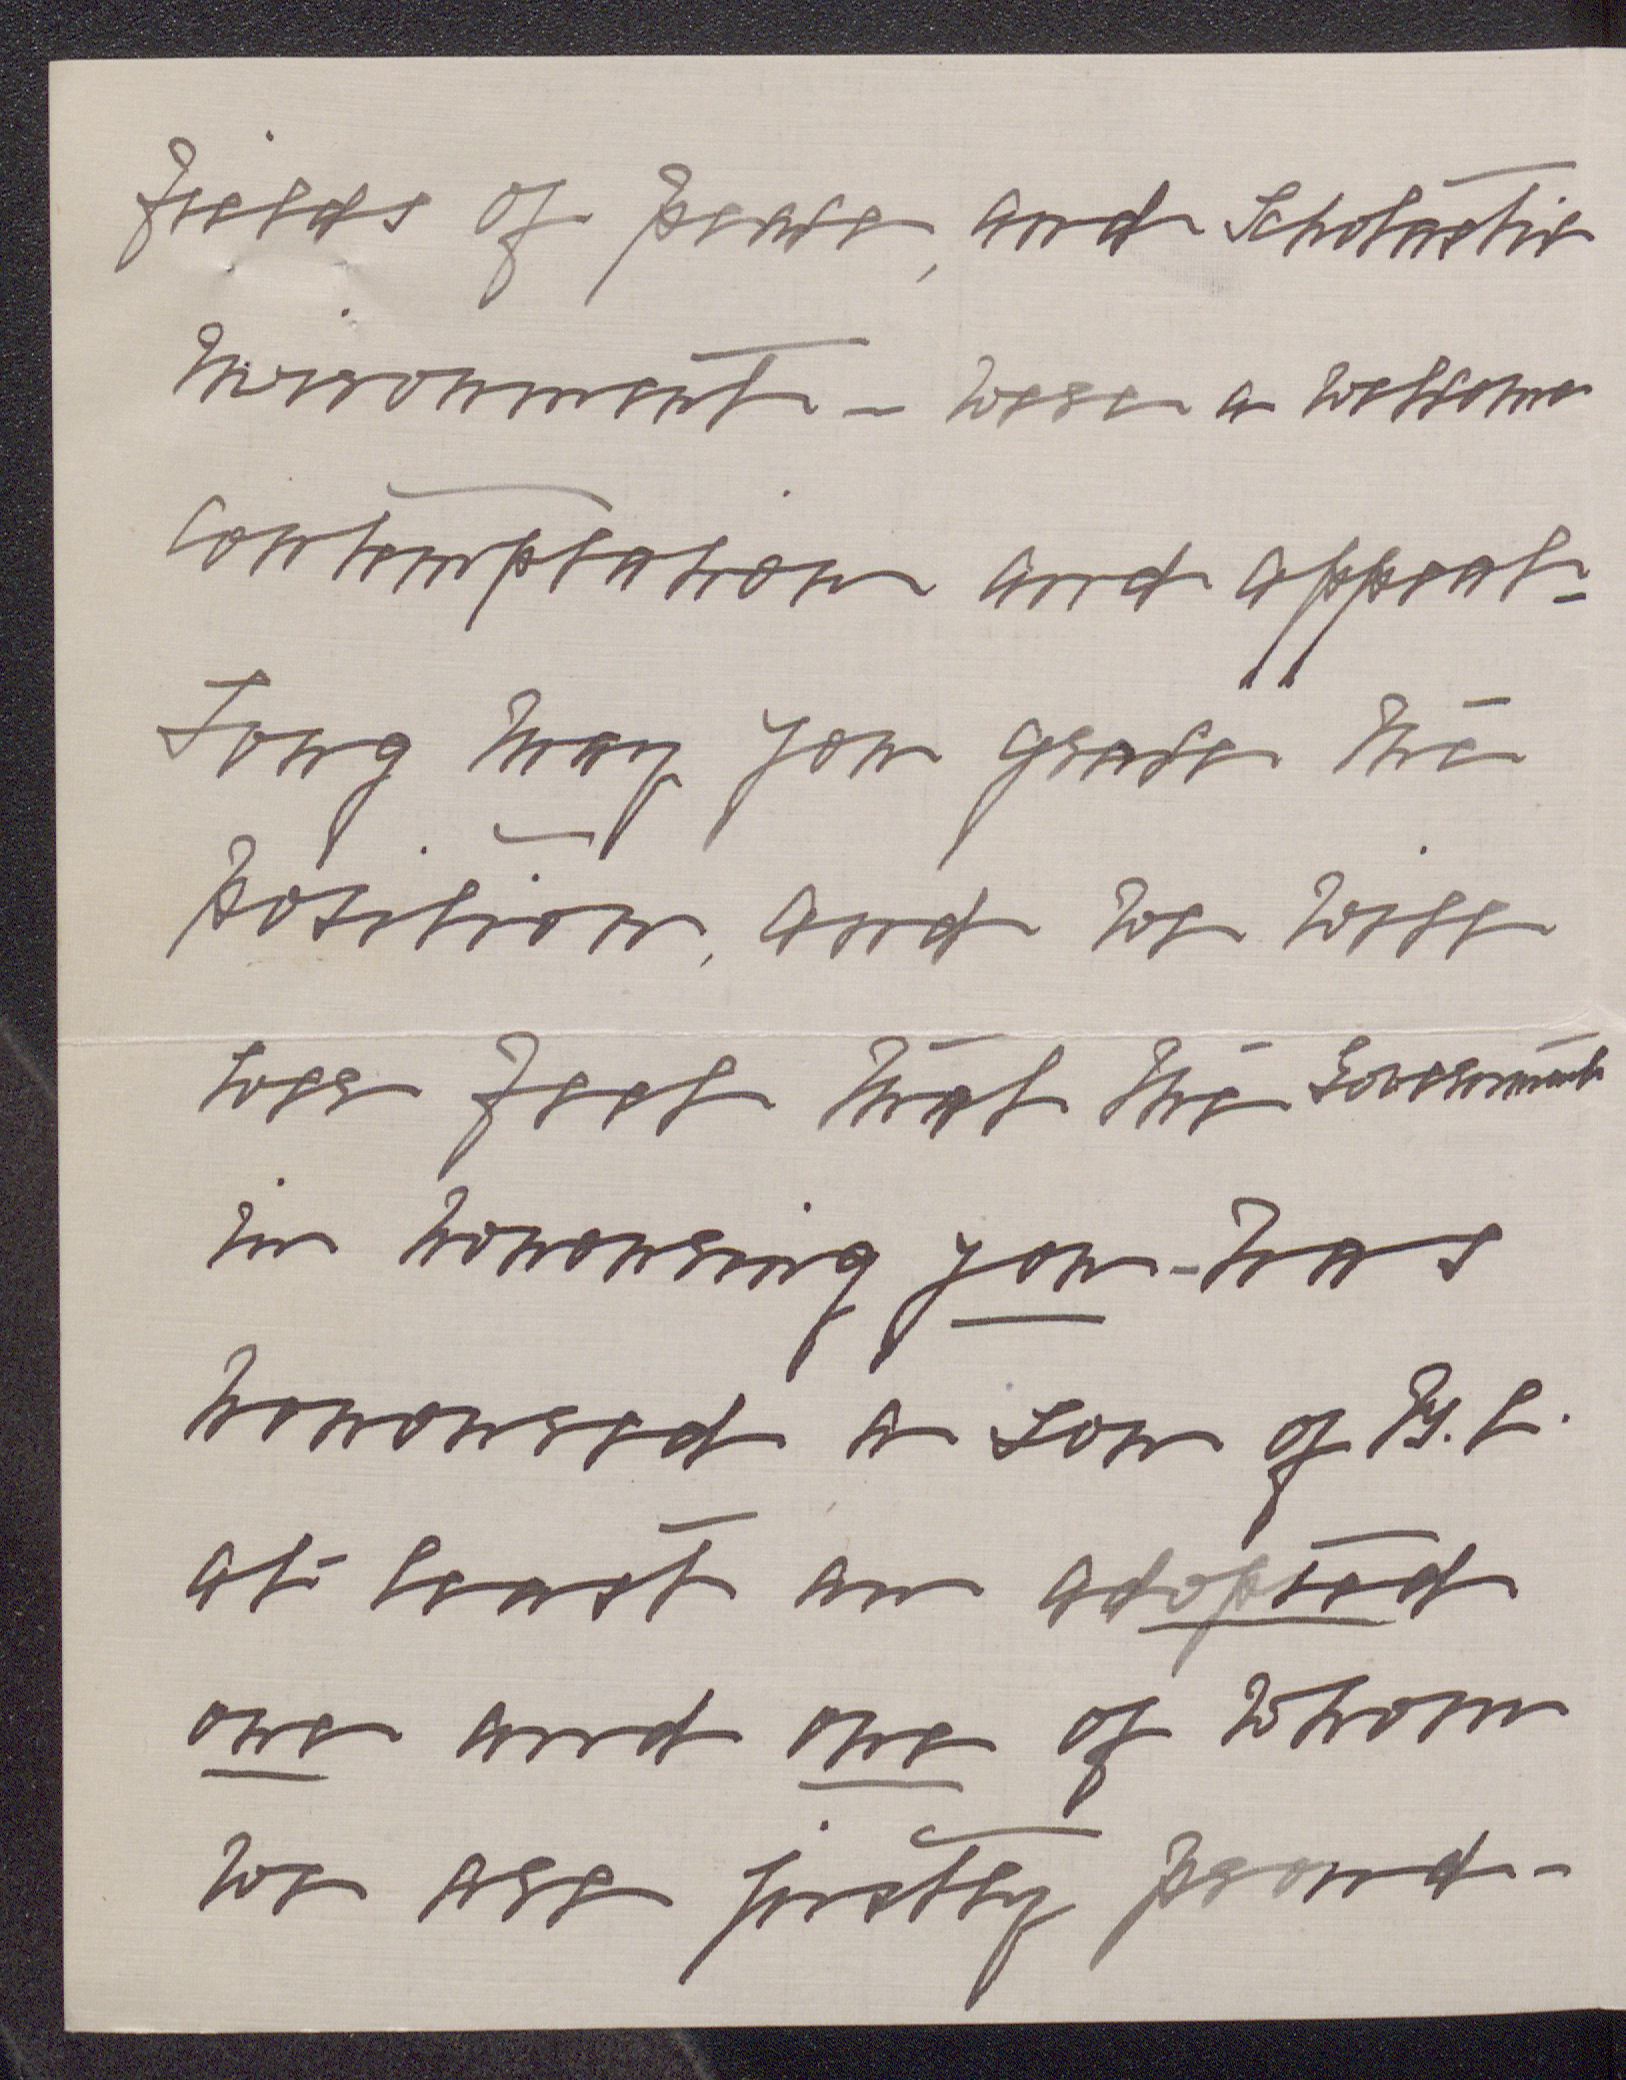 fields of peace, and scholastic
environment - were a welcome
contemplation and appeal -
Long may you grace the
position, and we will
ever feel that the Government
in honouring you - has
honoured a son of B.C.
at least an adopted
one and one of whom
we are justly proud -